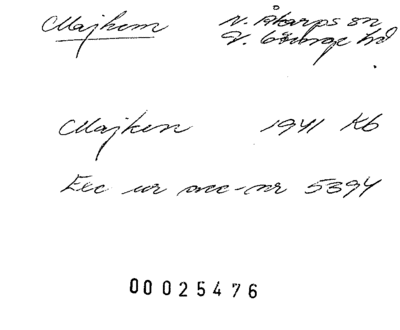 Majhem N. Åkarps sn
V. Göinge hd
Majken 1941 Kb
Exc ur acc-nr 5394
00025476